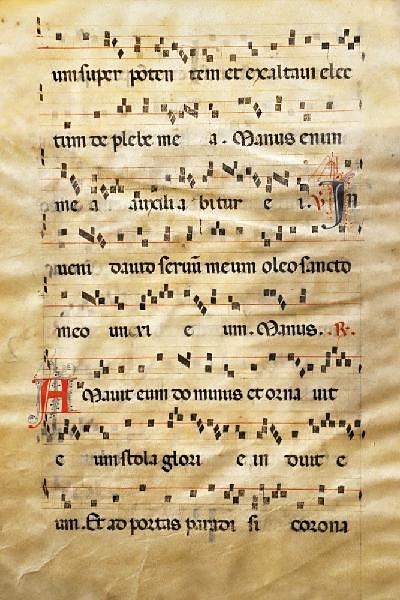 um super poten tem et exaltaui elec
tum de plebe me a. Manus enim
me a auxilia bitur e i. V In
ueni dauid seruū meum oleo sancto
meo unxi e um. Manus. R.
Amauit eum dominus et orna uit
e um stola glori e in duit e
um. Et ad portas paradi si corona